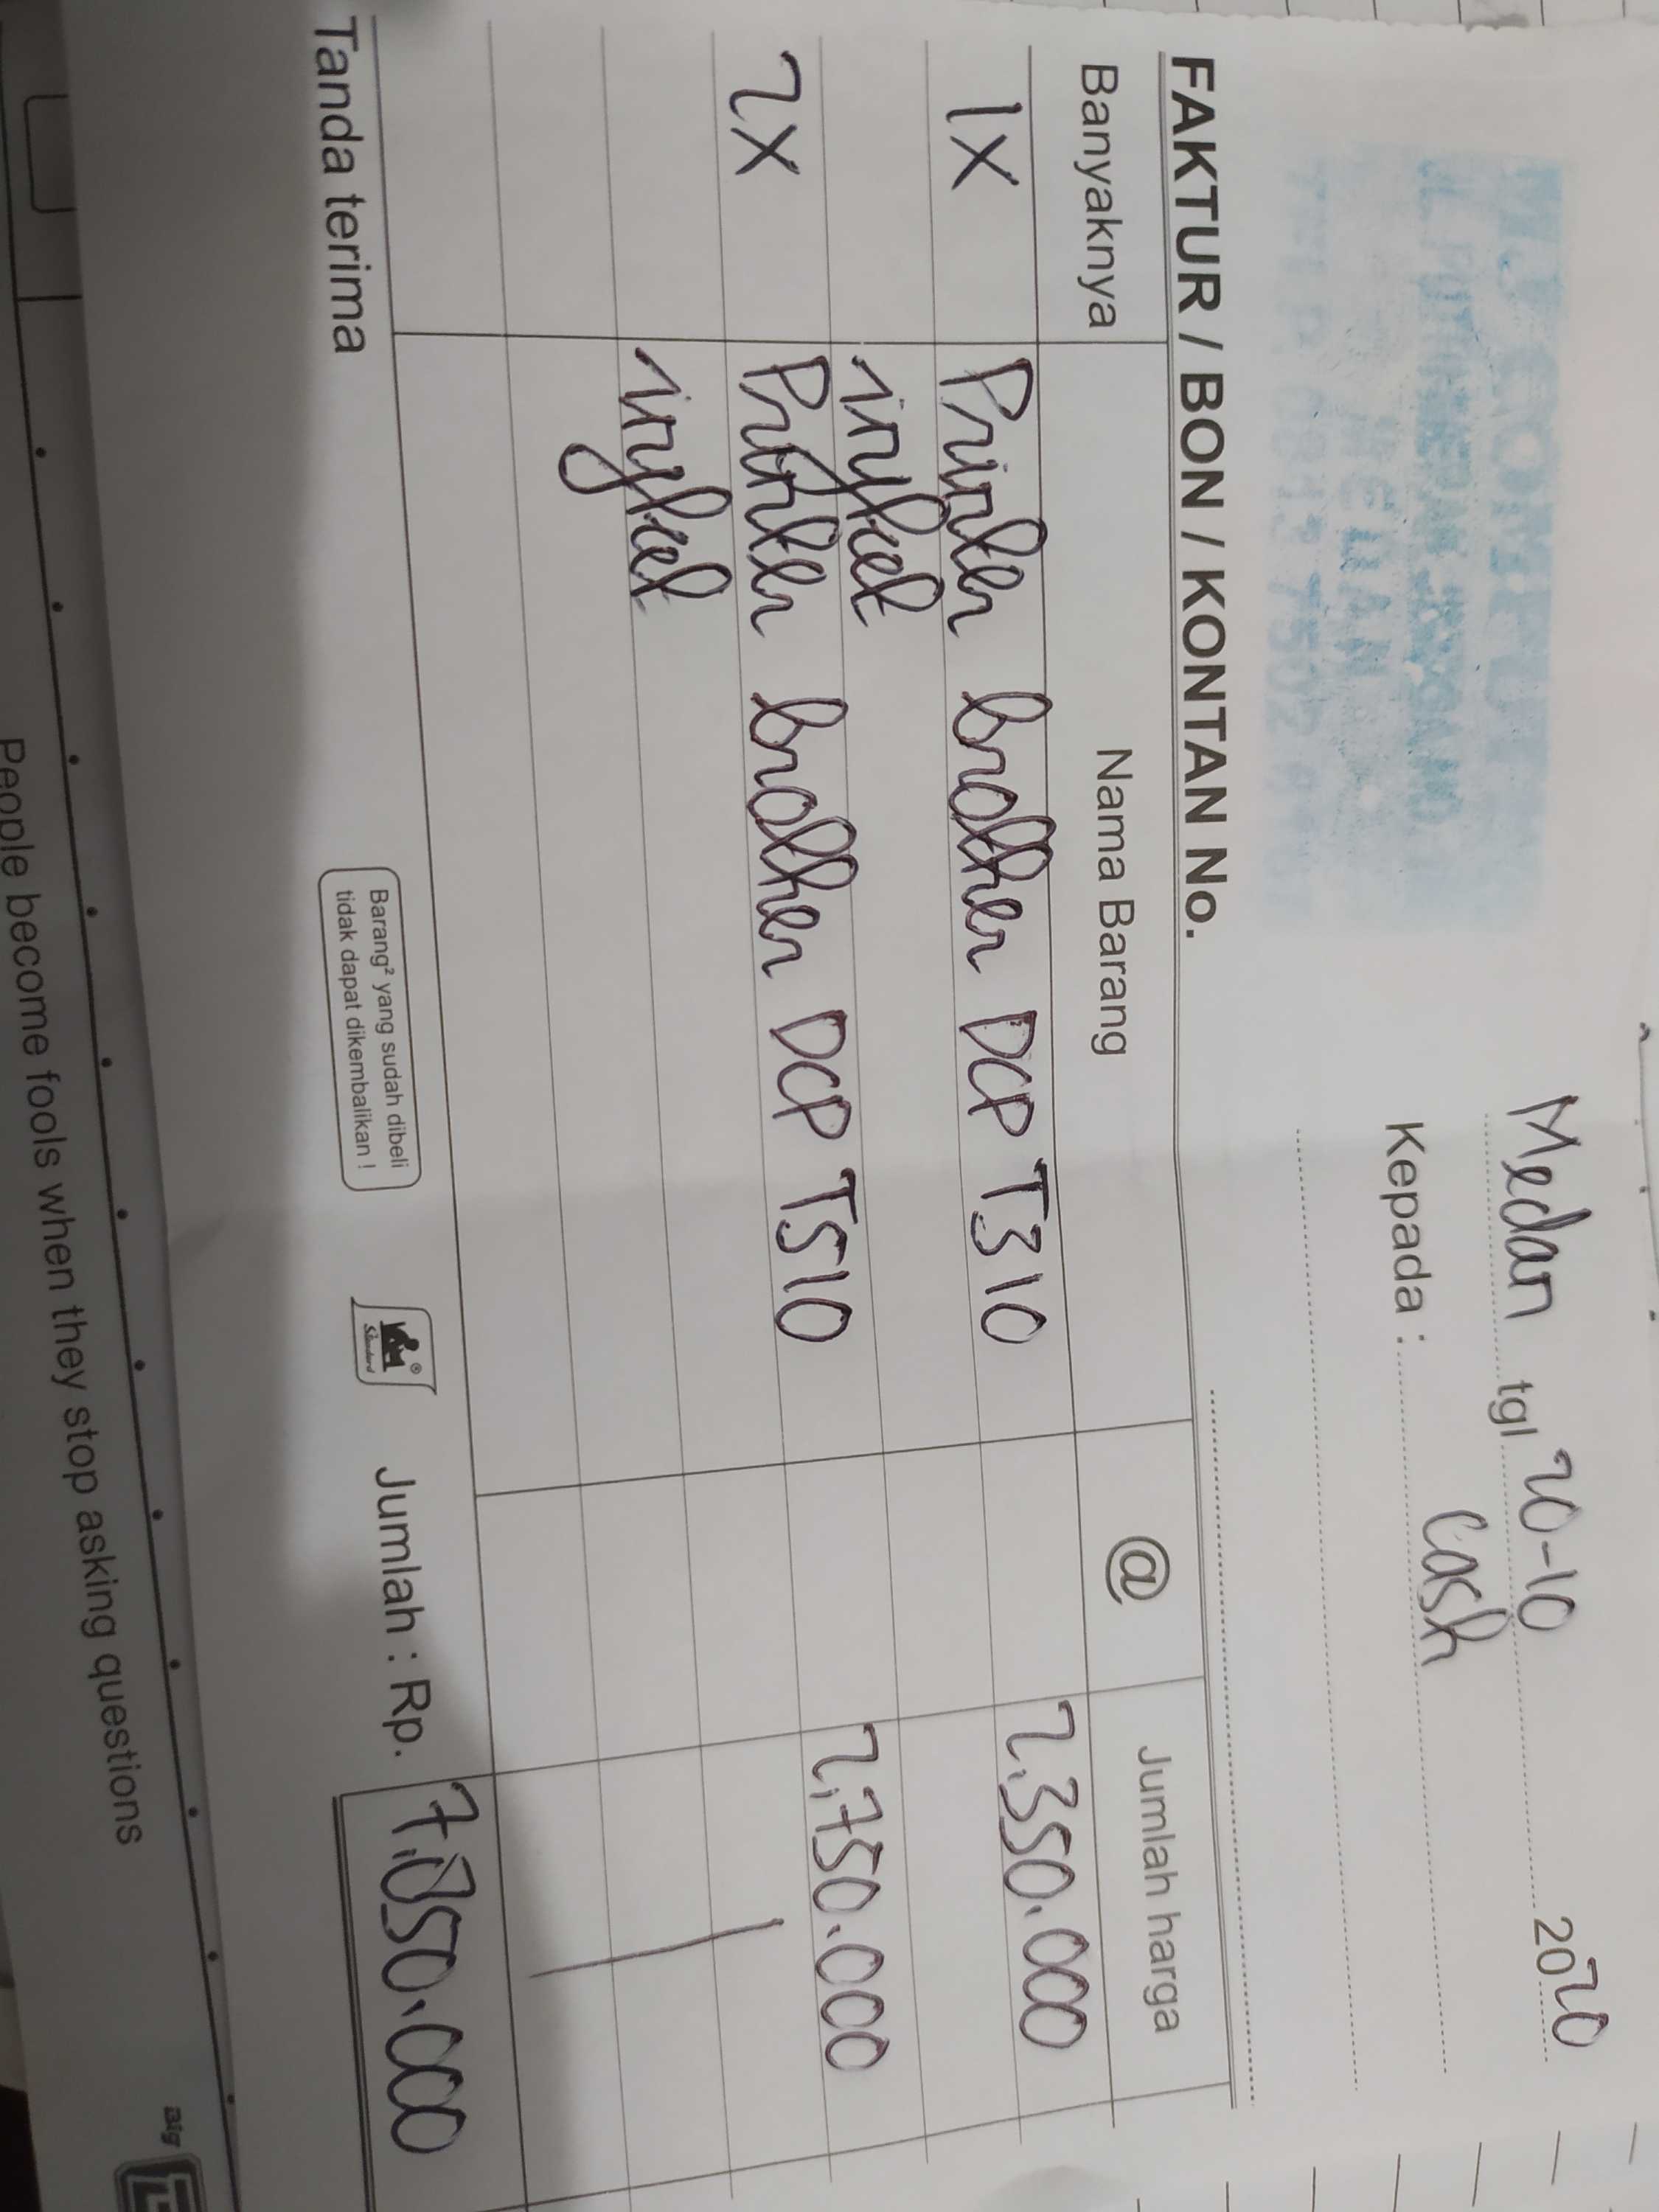 Medan tgl 20-10 2020
Kepada : Cash
FAKTUR / BON / KONTAN No.
Banyaknya Nama Barang @ Jumlah harga
1X Printer brother DCP T310 2.350.000
injket
2X Printer brother DCP T510 2.750.000
injket
Tanda terima
Barang² yang sudah dibeli
tidak dapat dikembalikan !
Standard
Jumlah : Rp. 7.850.000
People become fools when they stop asking questions
Big